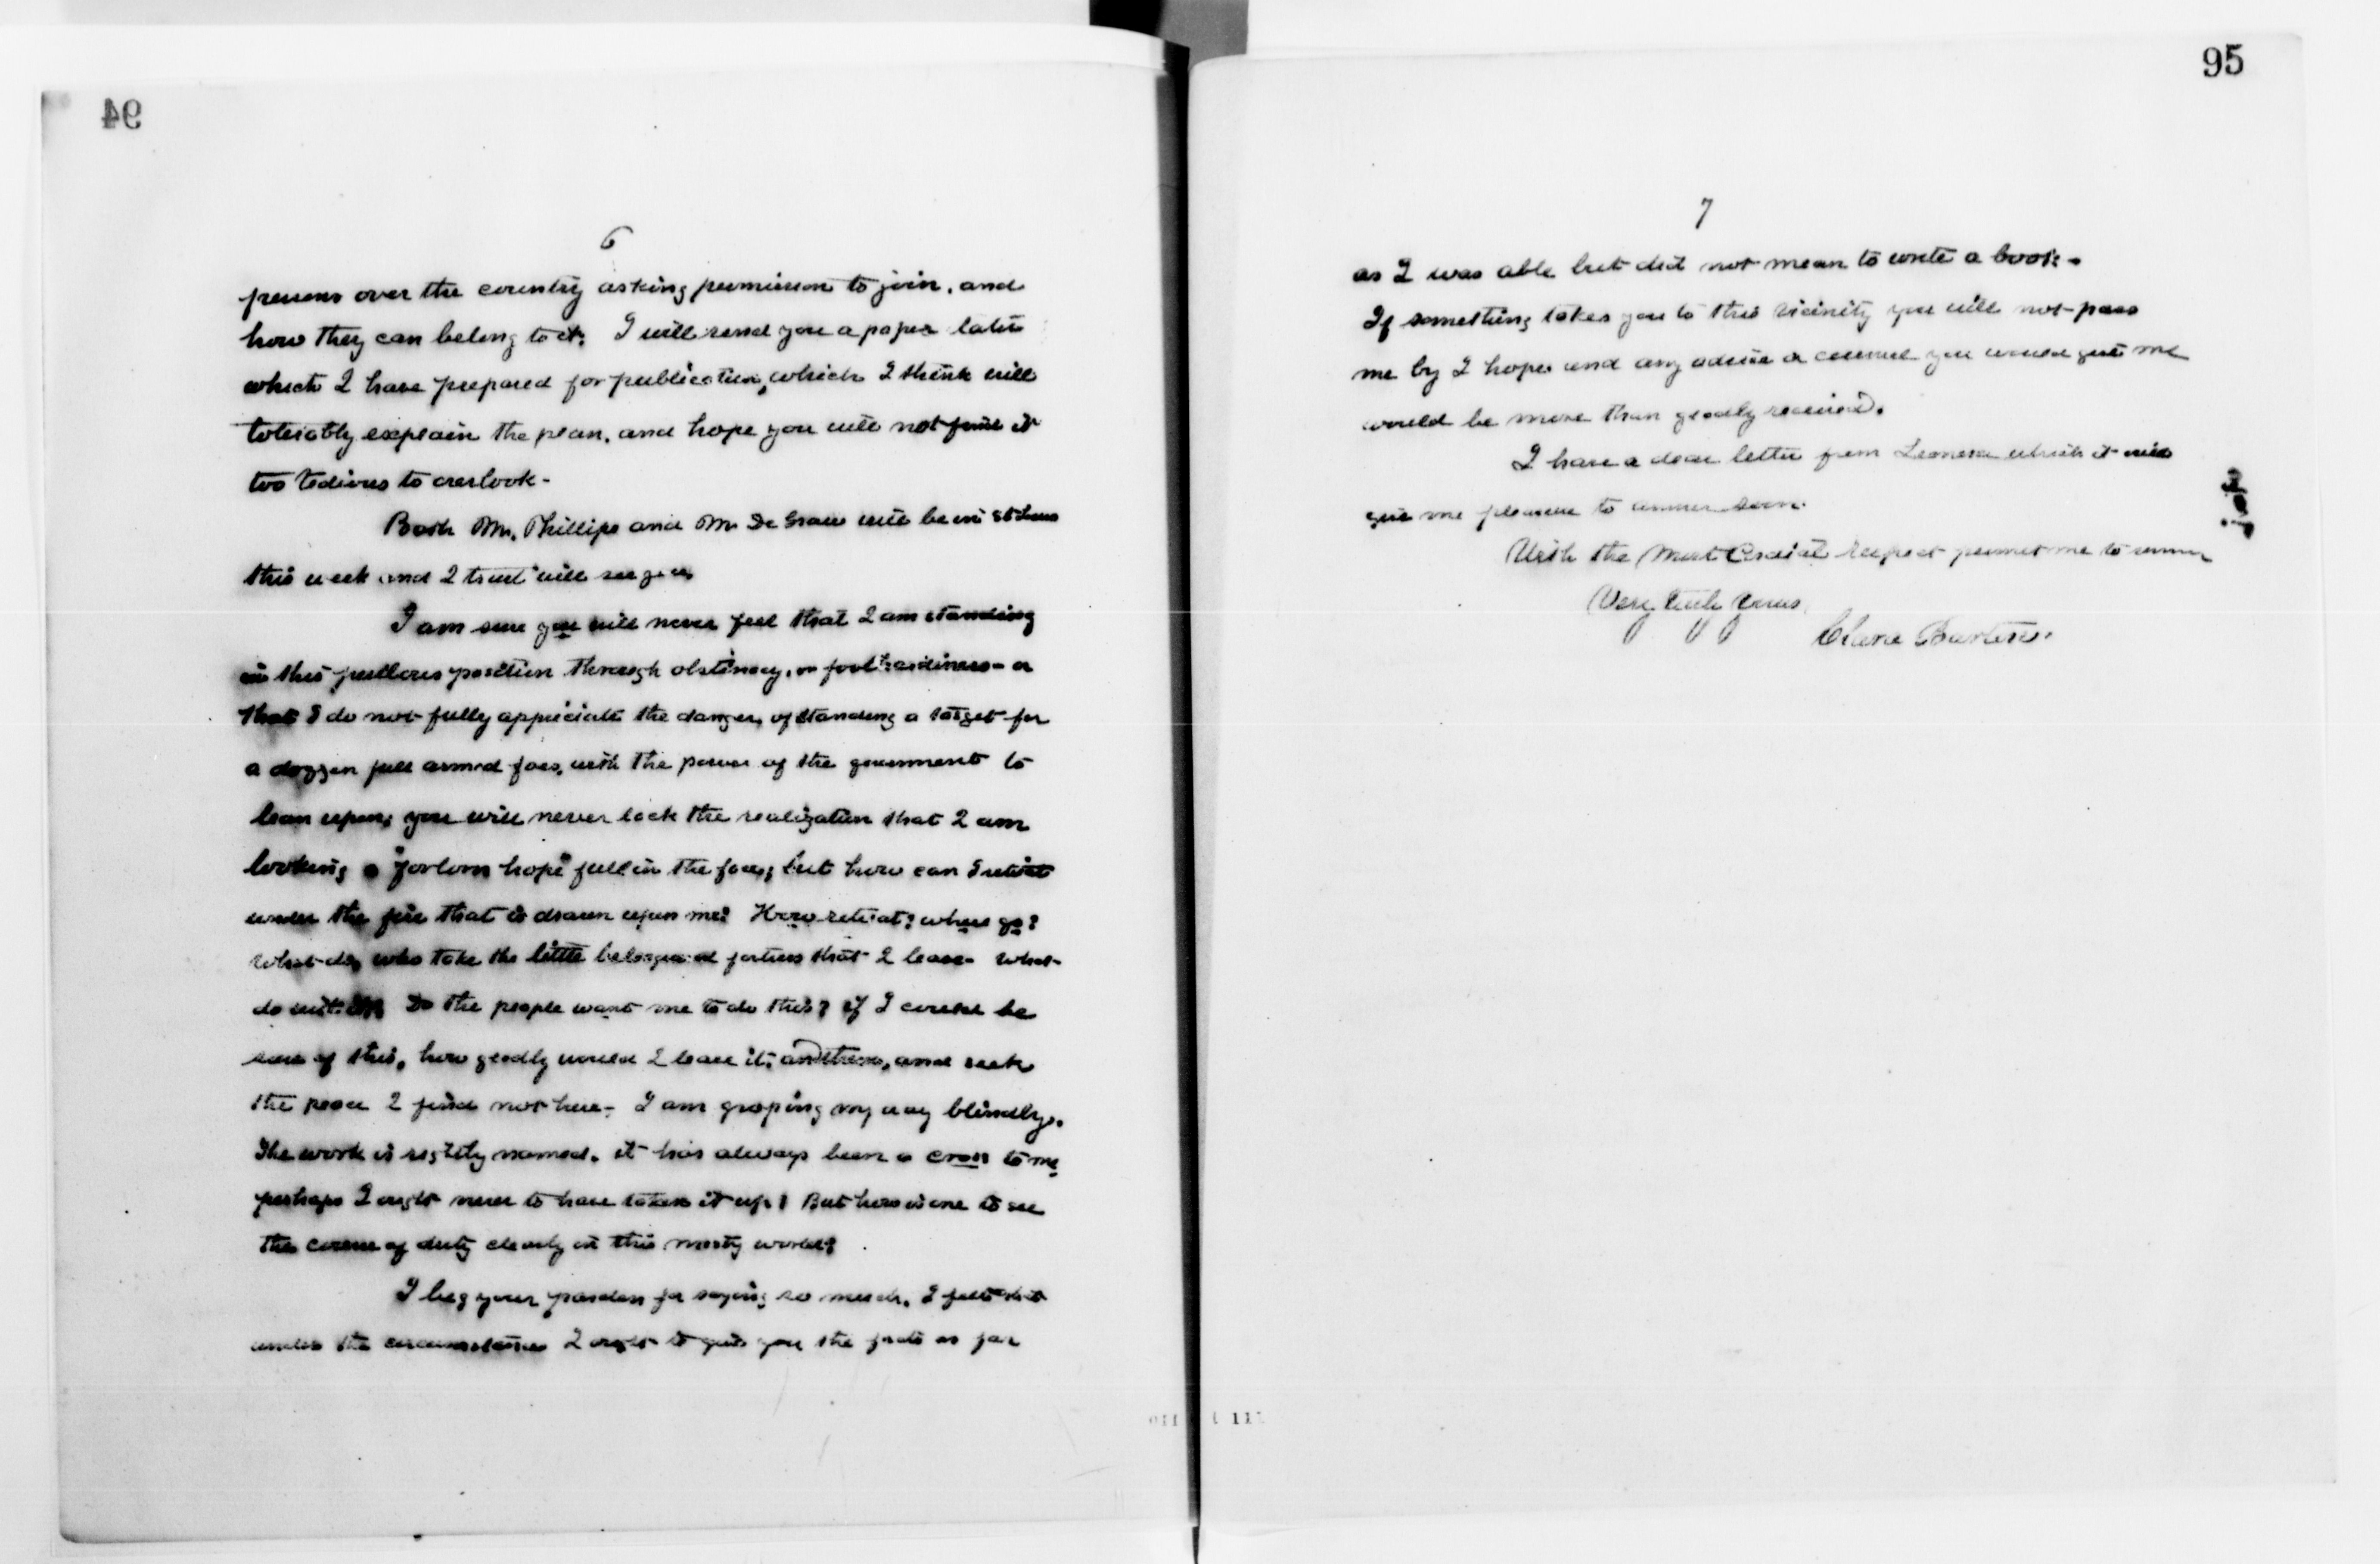 94
6
persons over the country asking permission to join, and
how they can belong to it. I will send you a paper later
which I have prepared for publication, which I think will
tolerably explain the plan, and hope you will not find it
too tedious to overlook-
Both Mr. Phillips and Mr De Graw will be in St Louis
this week and I trust will see you
I am sure you will never feel that I am standing
in this perilous position through obstinacy, or fool hardiness- or
that I do not fully appreciate the danger, of standing a target for
a dozzen full armed foes, with the power of the government to
lean upon; you will never lack the realization that I am
looking a "forlorn hope" full in the face; but how can I retire
under the fire that is drawn upon me? How retreat? where go?
what do, who take the little beleaguered fortress that I leave- what
do with it? Do the people want me to do this? if I could be
sure of this, how gladly would I leave it, and them, and seek
the peace I find not here- I am groping my way blindly.
The work is rightly named. it has always been a cross to me
perhaps I ought never to have taken it up! But how is one to see
the course of duty clearly in this misty world?
I beg your pardon for saying so much. I felt that
under the circumstances I ought to give you the facts as far
95
7
as I was able but did not mean to write a book-
If something takes you to this vicinity you will not pass
me by I hope and any advice or counsel you would give me
would be more than gladly received.
I have a dear letter from Leonora which it will
give me pleasure to answer soon.
With the most Cordial respect permit me to remain
Very truly yours
Clara Barton.